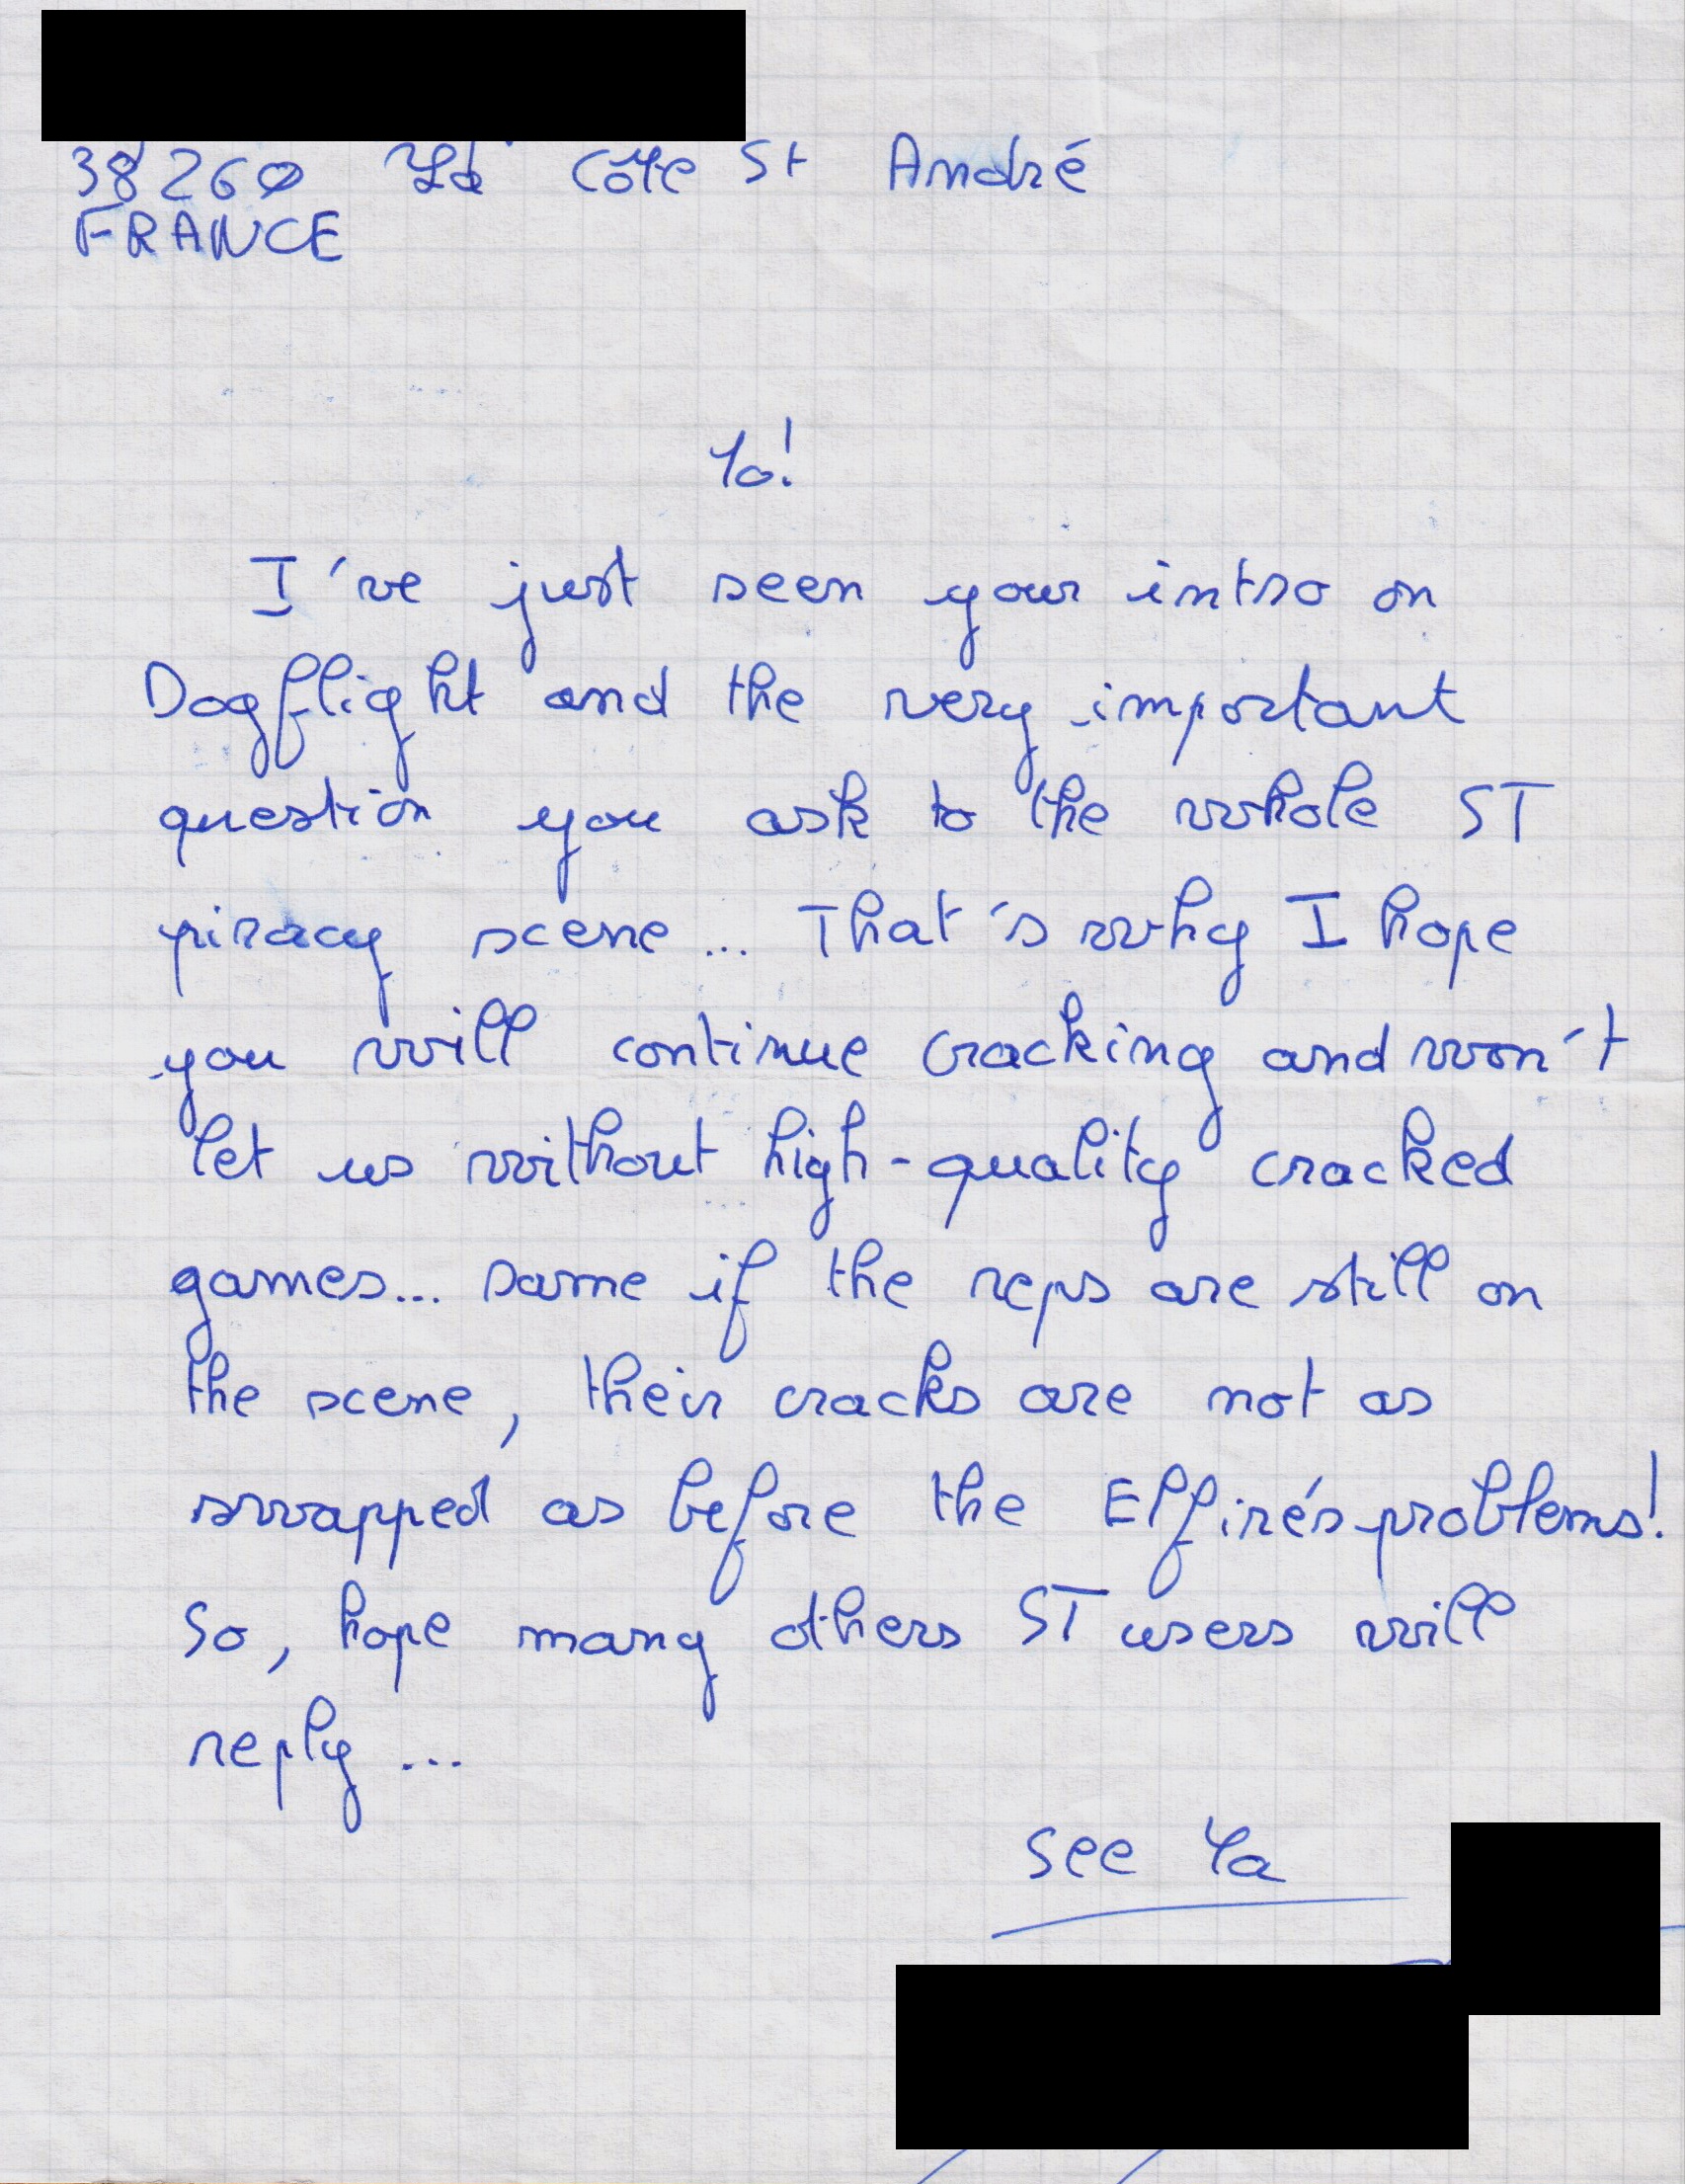 38260 La Côte St André
FRANCE
Yo!
I've just seen your intro on
Dogflight and the very important
question you ask to the whole ST
piracy scene... That's why I hope
you will continue cracking and won't
let us without high-quality cracked
games... same if the reps are still on
the scene, their cracks are not as
swapped as before the Elfire's problems!
So, hope many others ST users will
reply ...
See Ya